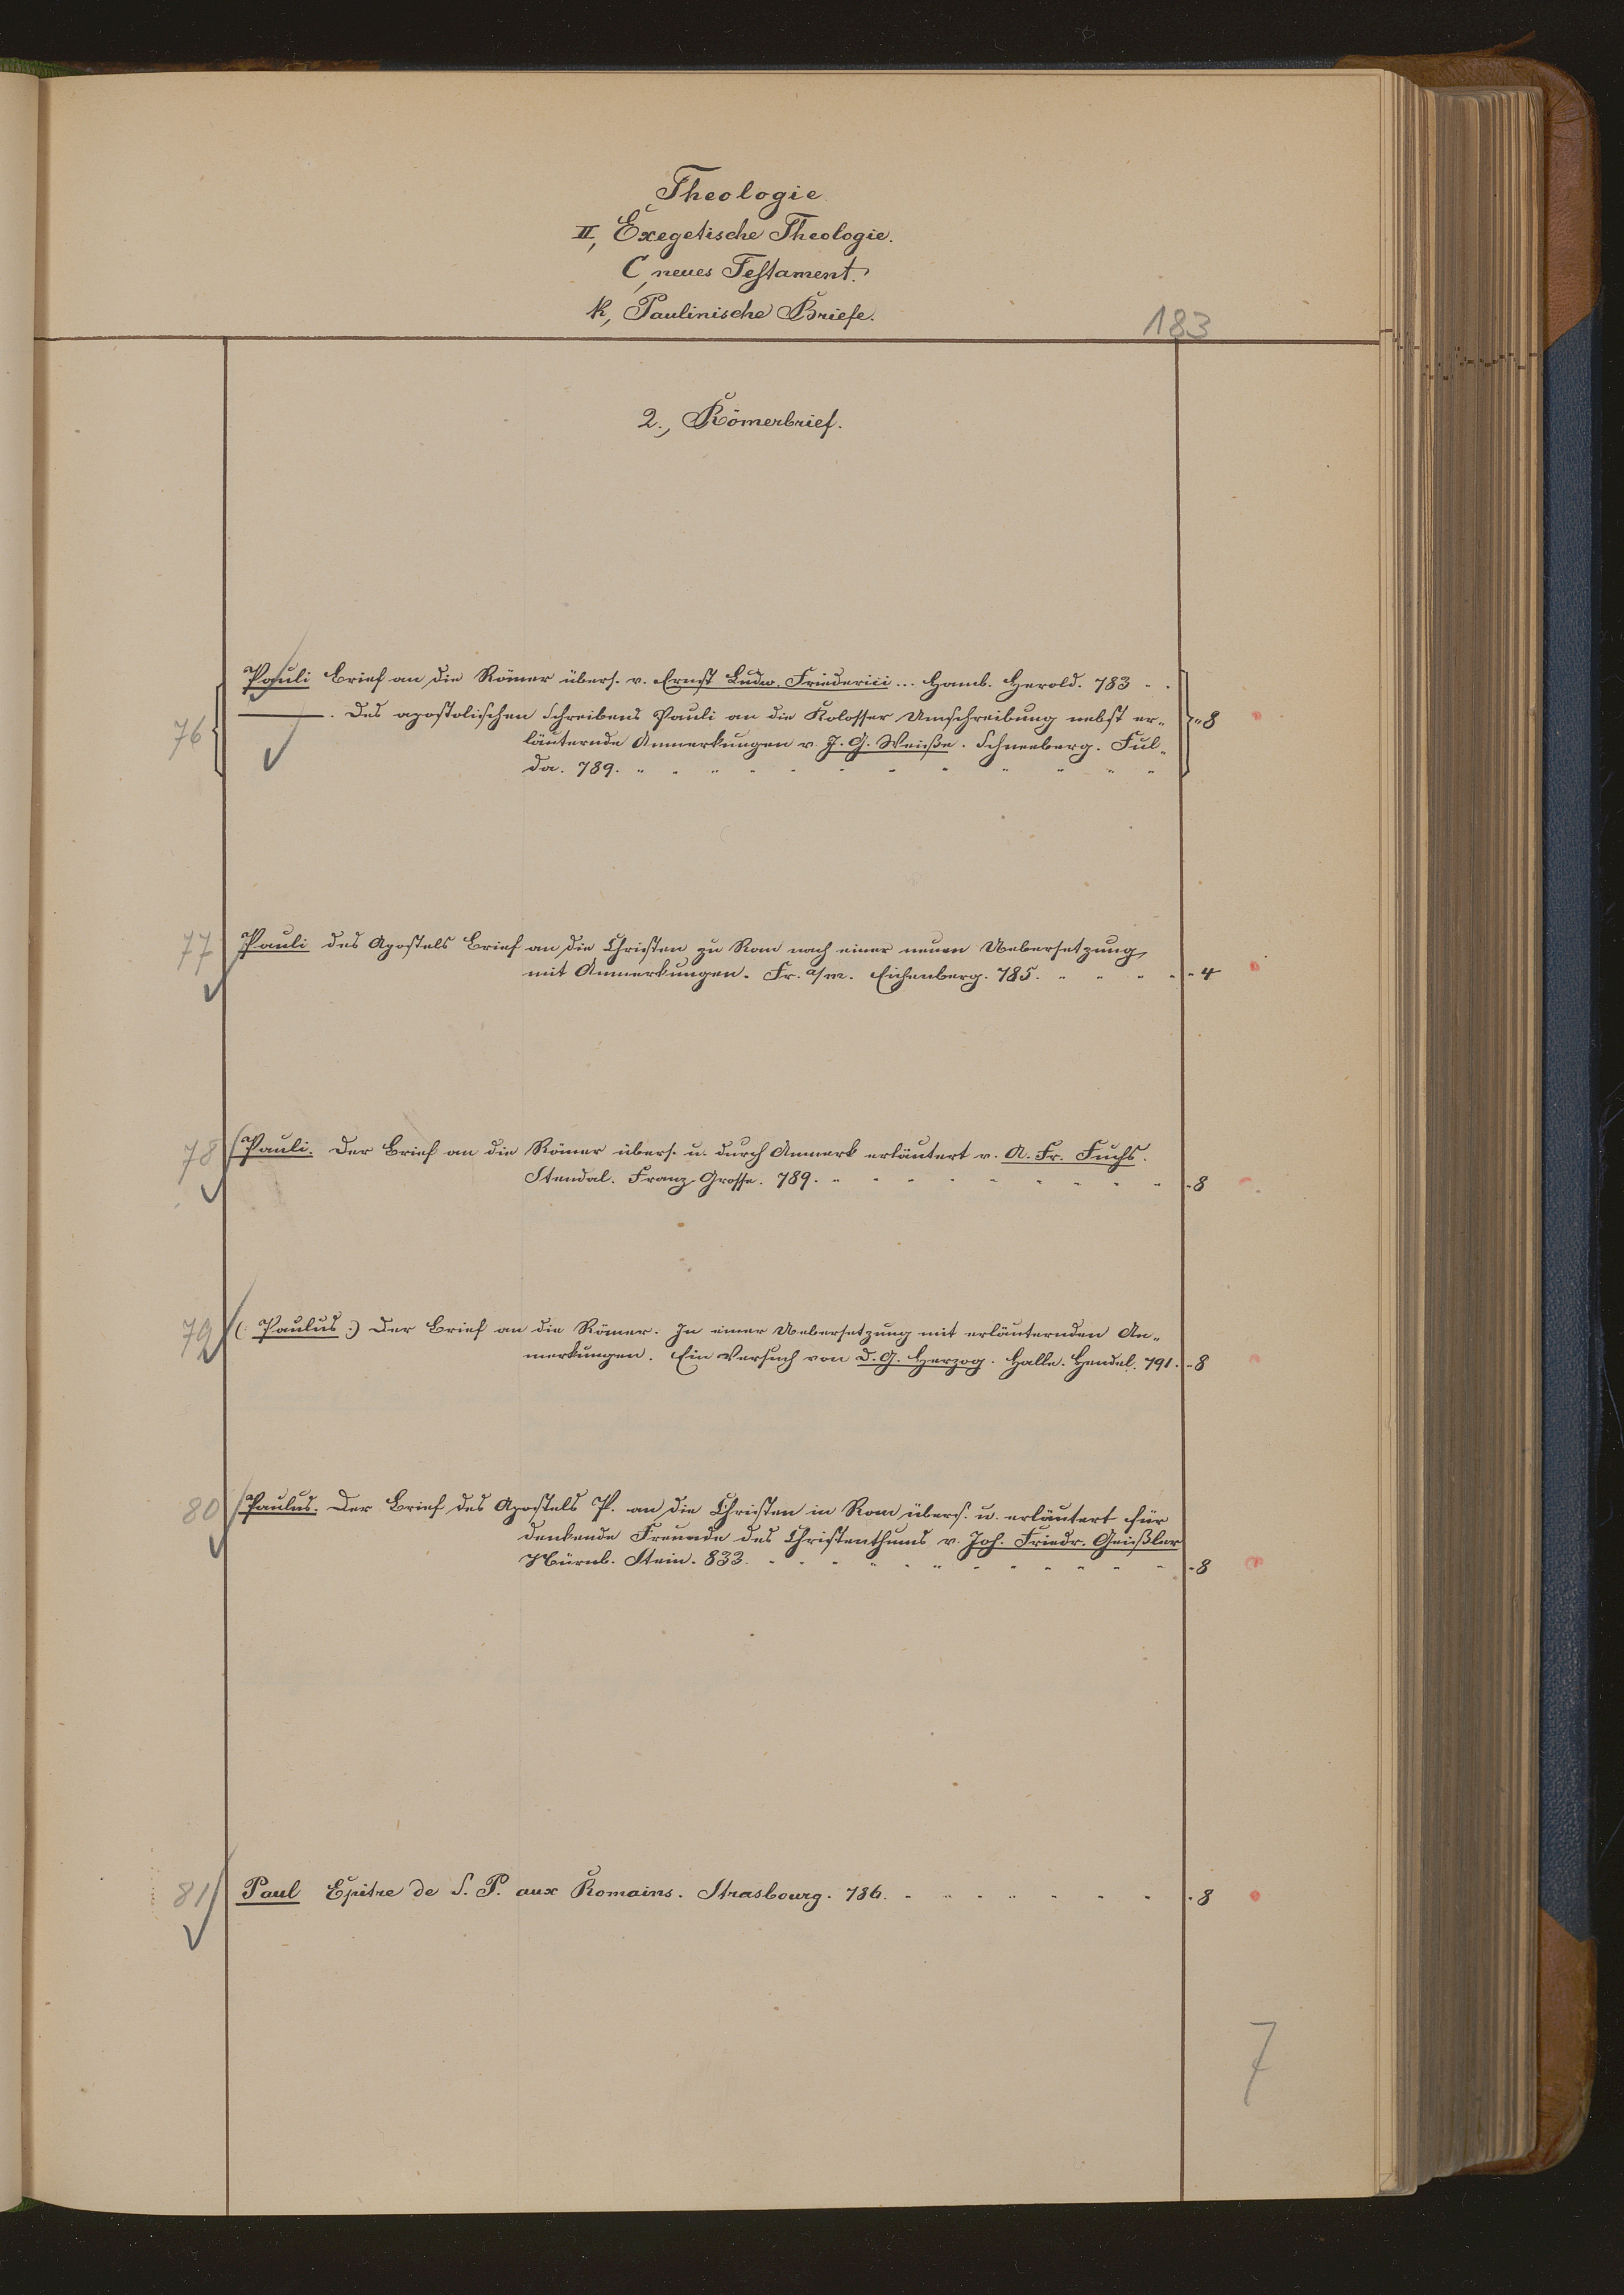 Theologie
II, Exegetische Theologie.
C, neues Testament.
k, Paulinische Briefe.
183
2., Römerbrief.
76
Pauli Brief an die Römer übers. v. Ernst Ludw. Friederici... Hamb. Herold. 783 - .
———. Des apostolischen Schreibens Pauli an die Kolosser Umschreibung nebst er- - 8
läuternde Anmerkungen v. J. G. Weiße. Schneeberg. Ful-
da. 789. - - - - - - - - - - - -
77 Pauli des Apostels Brief an die Christen zu Rom nach einer neuen Uebersetzung
mit Anmerkungen. Fr. a/m. Eichenberg. 785. - - - - - 4
78 Pauli. Der Brief an die Römer übers. u. durch Anmerk erläutert v. A. Fr. Fuchs.
Stendal. Franz. Grosse. 789. - - - - - - - - - - 8
79 (: Paulus :) Der Brief an die Römer. In einer Uebersetzung mit erläuternden An-
merkungen. Ein Versuch von D. G. Herzog. Halle. Hendel. 791. - 8
80 Paulus. Der Brief des Apostels P. an die Christen in Rom übers. u. erläutert für
denkende Freunde des Christenthums v. Joh. Friedr. Geißler
Nürnb. Stein. 833. - - - - - - - - - - - - 8
81 Paul Epitre de S. P. aux Romains. Strasbourg. 786. - - - - - - - - 8
7